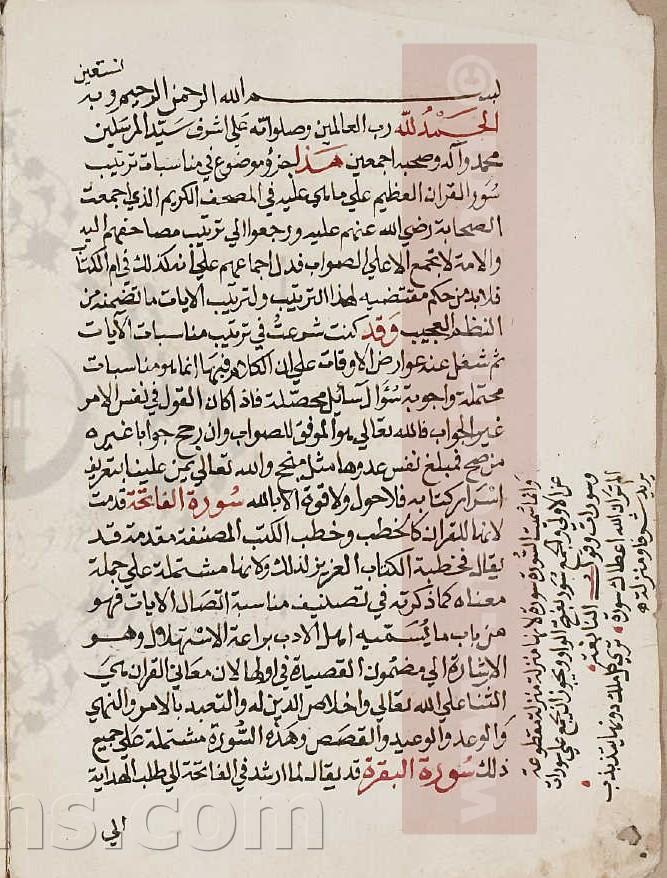 بسم الله الرحمن الرحيم وبه
نستعين
الحمد لله رب العالمين وصلواته على اشرف سيد المرسلين
محمد وآله وصحبه اجمعين هذا جزؤ موضوع في مناسبات ترتيب
سور القران العظيم علي ما هي عليه في المصحف الكريم الذي اجمعت
الصحابة رضي الله عنهم عليه ورجعوا الي ترتيب مصاحفهم اليه
والامة لا تجمع الا علي الصواب فدل اجماعهم علي انه كذلك في ام الكتاب
فلا بد من حكم مقتضيه لهذا الترتيب ولترتيب الايات ما تضمنه من
النظم العجيب وقد كنت شرعت في ترتيب مناسبات الآيات
ثم شغل عنه عوارض الاوقات علي ان الكلام فيها انما هو مناسبات
محتملة واجوبة سؤال سآئل محصلة فاذا كان القول في نفس الامر
غير الجواب فالله تعالي هو الموفق للصواب وان رجح جوابا غيره
من صح فمبلغ نفس عذرها مثل منجح والله تعالي يمن علينا بتعريف
اسرار كتابه فلا حول ولا قوة الا بالله سورة الفاتحة قدمت
لانها للقران كالخطب وخطب الكتب المصنفة مقدمة قد
يقال فخطبة الكتاب العزيز لذلك ولانها مشتملة علي جملة
معناه كما ذكرته في تصنيف مناسبة اتصال الايات فهو
من باب ما يسميه اهل الادب براعة الاستهلال وهو
الاشارة الي مضمون القصيدة في اولها لان معاني القران هي
الثنا علي الله تعالي واخلاص الدين له والتعبد بالامر والنهي
والوعد والوعيد والقصص وهذه السورة مشتملة علي جميع
ذلك سورة البقرة قد يقال لما ارشد في الفاتحة الي طلب الهداية
الي
وانما سميت السورة سورة لانها منزلة منزلة مقطوعة
عن الاولي والجمع سور بفتح الواو ويجوز ان يجمع علي سورات
وسورات وقول النابغة
الم تر ان الله اعطاك سورة تري كل ملك دونها يتذبذب
يريد شرفا ومنزلة
ns.com